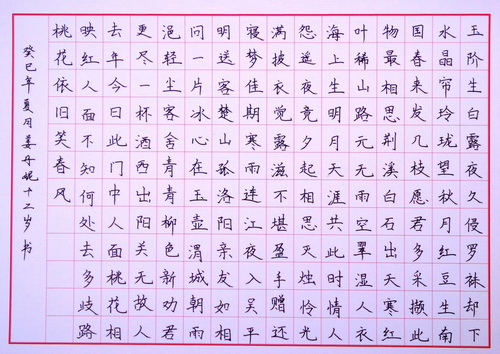 玉阶生白露夜久侵罗袜却下
水晶帘玲珑望秋月红豆生南
国春来发几枝愿君多采撷此
物最相思荆溪白石出天寒红
叶稀山路元无雨空翠湿人衣
海上生明月天涯共此时情人
怨遥夜竟夕起相思灭烛怜光
满披衣觉露滋不堪盈手赠还
寝梦佳期寒雨连江夜入吴平
明送客楚山孤洛阳亲友如相
问一片冰心在玉壶渭城朝雨
浥轻尘客舍青青柳色新劝君
更尽一杯酒西出阳关无故人
去年今日此门中人面桃花相
映红人面不知何处去多歧路
桃花依旧笑春风
癸巳年夏月姜丹妮十二岁书